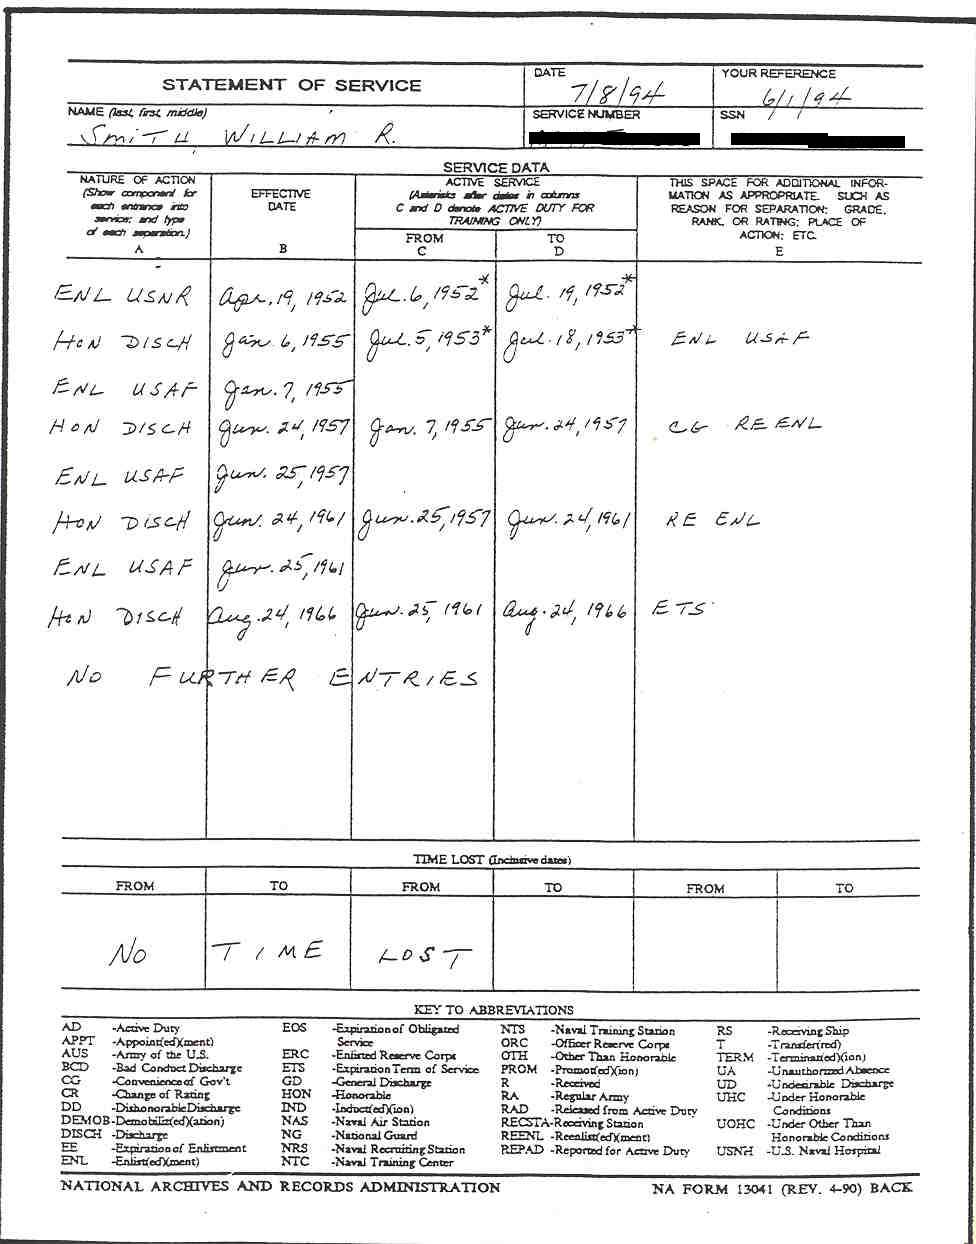 STATEMENT OF SERVICE
DATE
7/8/94
YOUR REFERENCE
6/1/94
NAME (last, first, middle)
SMITH WILLIAM R.
SERVICE NUMBER
SSN
SERVICE DATA
NATURE OF ACTION
(Show component for
each entrance into
service; and type
of each separation.)
A
EFFECTIVE
DATE
B
ACTIVE SERVICE
(Asterisks after dates in columns
C and D denote ACTIVE DUTY FOR
TRAINING ONLY)
FROM
C
TO
D
THIS SPACE FOR ADDITIONAL INFOR-
MATION AS APPROPRIATE. SUCH AS
REASON FOR SEPARATION; GRADE,
RANK, OR RATING; PLACE OF
ACTION; ETC.
E
ENL USNR Apr. 19, 1952 Jul. 6, 1952* Jul. 19, 1952*
HON DISCH Jan. 6, 1955 Jul. 5, 1953* Jul. 18, 1953* ENL USAF
ENL USAF Jan. 7, 1955
HON DISCH Jun. 24, 1957 Jan. 7, 1955 Jun. 24, 1957 CG RE ENL
ENL USAF Jun. 25, 1957
HON DISCH Jun. 24, 1961 Jun. 25, 1957 Jun. 24, 1961 RE ENL
ENL USAF Jun. 25, 1961
HON DISCH Aug. 24, 1966 Jun. 25, 1961 Aug. 24, 1966 ETS
NO FURTHER ENTRIES
TIME LOST (Inclusive dates)
FROM TO FROM TO FROM TO
NO TIME LOST
KEY TO ABBREVIATIONS
AD -Active Duty
APPT -Appoint(ed)(ment)
AUS -Army of the U.S.
BCD -Bad Conduct Discharge
CG -Convenience of Gov't
CR -Change of Rating
DD -Dishonorable Discharge
DEMOB -Demobiliz(ed)(ation)
DISCH -Discharge
EE -Expiration of Enlistment
ENL -Enlist(ed)(ment)
EOS -Expiration of Obligated
Service
ERC -Enlisted Reserve Corps
ETS -Expiration Term of Service
GD -General Discharge
HON -Honorable
IND -Induct(ed)(ion)
NAS -Naval Air Station
NG -National Guard
NRS -Naval Recruiting Station
NTC -Naval Training Center
NTS -Naval Training Station
ORC -Officer Reserve Corps
OTH -Other Than Honorable
PROM -Promot(ed)(ion)
R -Received
RA -Regular Army
RAD -Released from Active Duty
RECSTA -Receiving Station
REENL -Reenlist(ed)(ment)
REPAD -Reported for Active Duty
RS -Receiving Ship
T -Transfer(red)
TERM -Terminat(ed)(ion)
UA -Unauthorized Absence
UD -Undesirable Discharge
UHC -Under Honorable
Conditions
UOHC -Under Other Than
Honorable Conditions
USNH -U.S. Naval Hospital
NATIONAL ARCHIVES AND RECORDS ADMINISTRATION
NA FORM 13041 (REV. 4-90) BACK